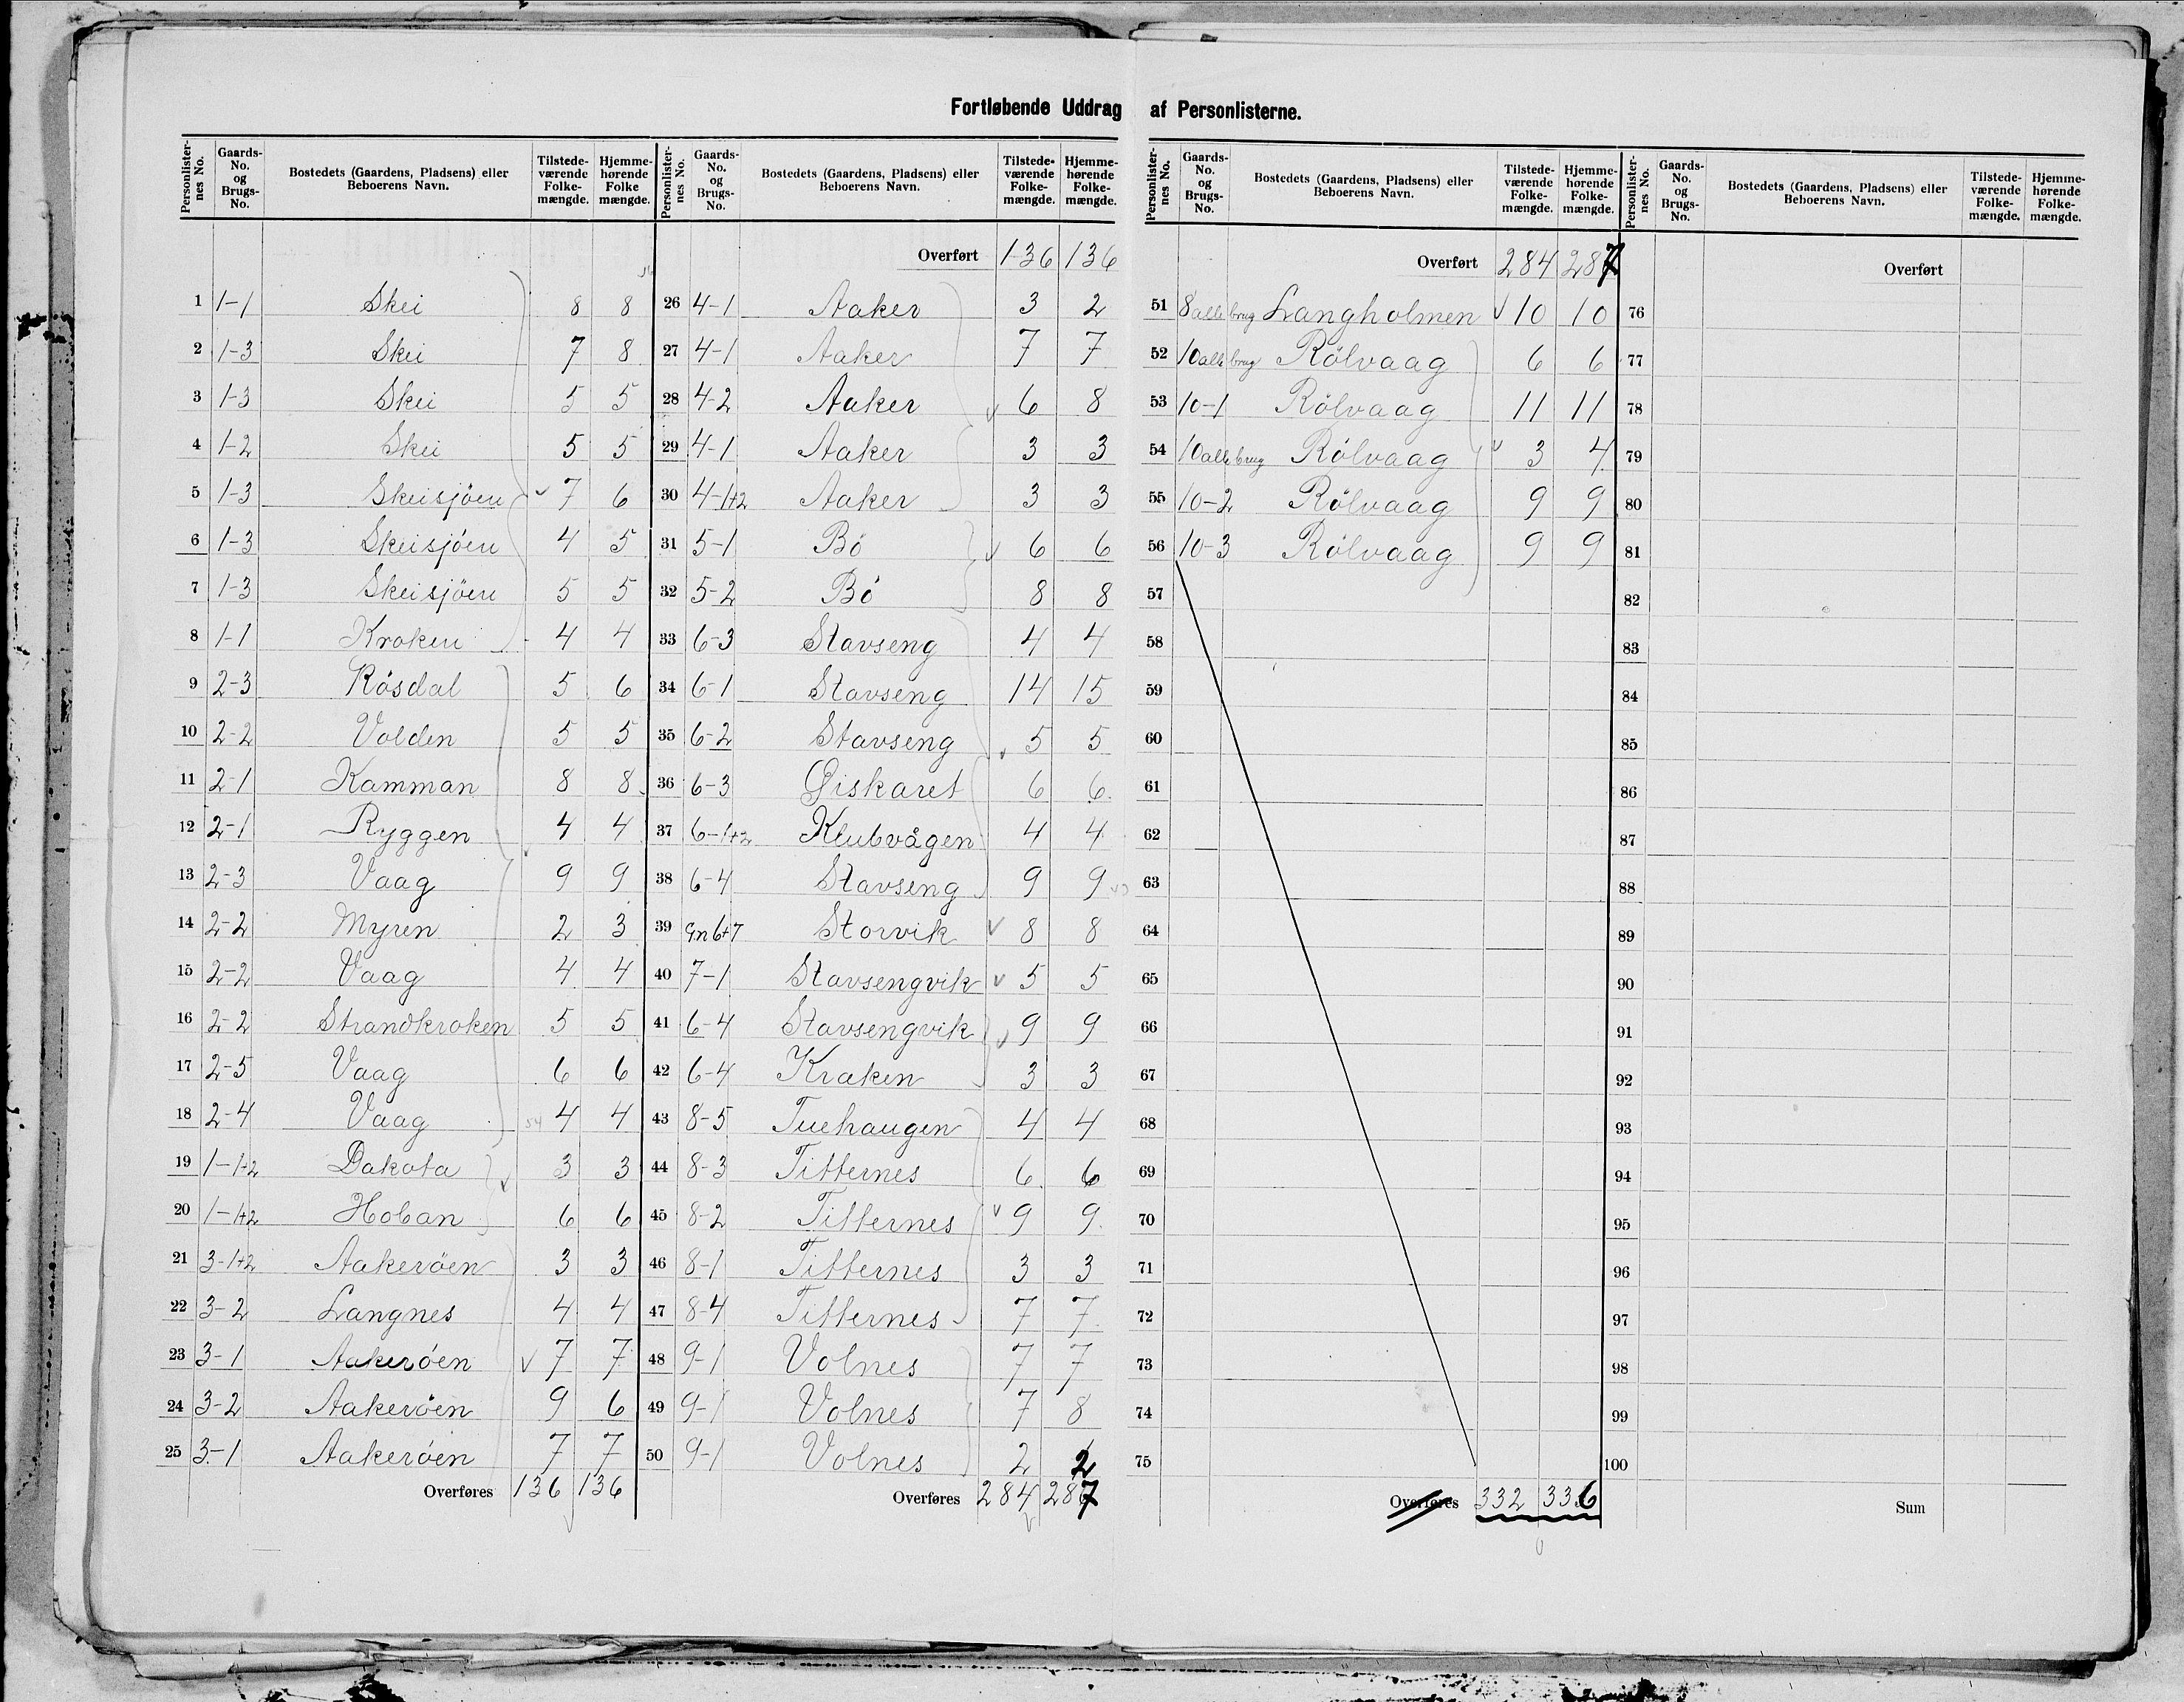 Fortløbende Uddrag af Personlisterne.
Personlister-nes No. Gaards-No. og Brugs-No. Bostedets (Gaardens, Pladsens) eller Beboerens Navn. Tilstede-værende Folke-mængde. Hjemme-hørende Folke mængde.
1 1-1 Skei 8 8
2 1-3 Skei 7 8
3 1-3 Skei 5 5
4 1-2 Skei 5 5
5 1-3 Skeisjöen 7 6
6 1-3 Skeisjöen 4 5
7 1-3 Skeisjöen 5 5
8 1-1 Kroken 4 4
9 2-3 Rösdal 5 6
10 2-2 Volden 5 5
11 2-1 Kamman 8 8
12 2-1 Ryggen 4 4
13 2-3 Vaag 9 9
14 2-2 Myren 2 3
15 2-2 Vaag 4 4
16 2-2 Strandkroken 5 5
17 2-5 Vaag 6 6
18 2-4 Vaag 4 4
19 1-1+2 Dakota 3 3
20 1-1+2 Hoban 6 6
21 3-1+2 Aakeröen 3 3
22 3-2 Langnes 4 4
23 3-1 Aakeröen 7 7
24 3-2 Aakeröen 9 6
25 3-1 Aakeröen 7 7
Overføres 136 136
Personlister-nes No. Gaards-No. og Brugs-No. Bostedets (Gaardens, Pladsens) eller Beboerens Navn. Tilstede-værende Folke-mængde. Hjemme-hørende Folke-mængde.
Overført 136 136
26 4-1 Aaker 3 2
27 4-1 Aaker 7 7
28 4-2 Aaker 6 8
29 4-1 Aaker 3 3
30 4-1+2 Aaker 3 3
31 5-1 Bö 6 6
32 5-2 Bö 8 8
33 6-3 Stavseng 4 4
34 6-1 Stavseng 14 15
35 6-2 Stavseng 5 5
36 6-3 Giskaret 6 6
37 6-1+2 Klubvågen 4 4
38 6-4 Stavseng 9 9
39 Gn 6+7 Storvik 8 8
40 7-1 Stavsengvik 5 5
41 6-4 Stavsengvik 9 9
42 6-4 Kraken 3 3
43 8-5 Tuehaugen 4 4
44 8-3 Titternes 6 6
45 8-2 Titternes 9 9
46 8-1 Titternes 3 3
47 8-4 Titternes 7 7
48 9-1 Volnes 7 7
49 9-1 Volnes 7 8
50 9-1 Volnes 2 2
Overføres 284 287
Personlister-nes No. Gaards-No. og Brugs-No. Bostedets (Gaardens, Pladsens) eller Beboerens Navn. Tilstede-værende Folke-mængde. Hjemme-hørende Folke-mængde.
Overført 284 287
51 8 alle brug Langholmen 10 10
52 10 alle brug Rölvaag 6 6
53 10-1 Rölvaag 11 11
54 10 alle brug Rölvaag 3 4
55 10-2 Rölvaag 9 9
56 10-3 Rölvaag 9 9
57
58
59
60
61
62
63
64
65
66
67
68
69
70
71
72
73
74
75
Overføres 332 336
Personlister-nes No. Gaards-No. og Brugs-No. Bostedets (Gaardens, Pladsens) eller Beboerens Navn. Tilstede-værende Folke-mængde. Hjemme-hørende Folke-mængde.
Overført
76
77
78
79
80
81
82
83
84
85
86
87
88
89
90
91
92
93
94
95
96
97
98
99
100
Sum